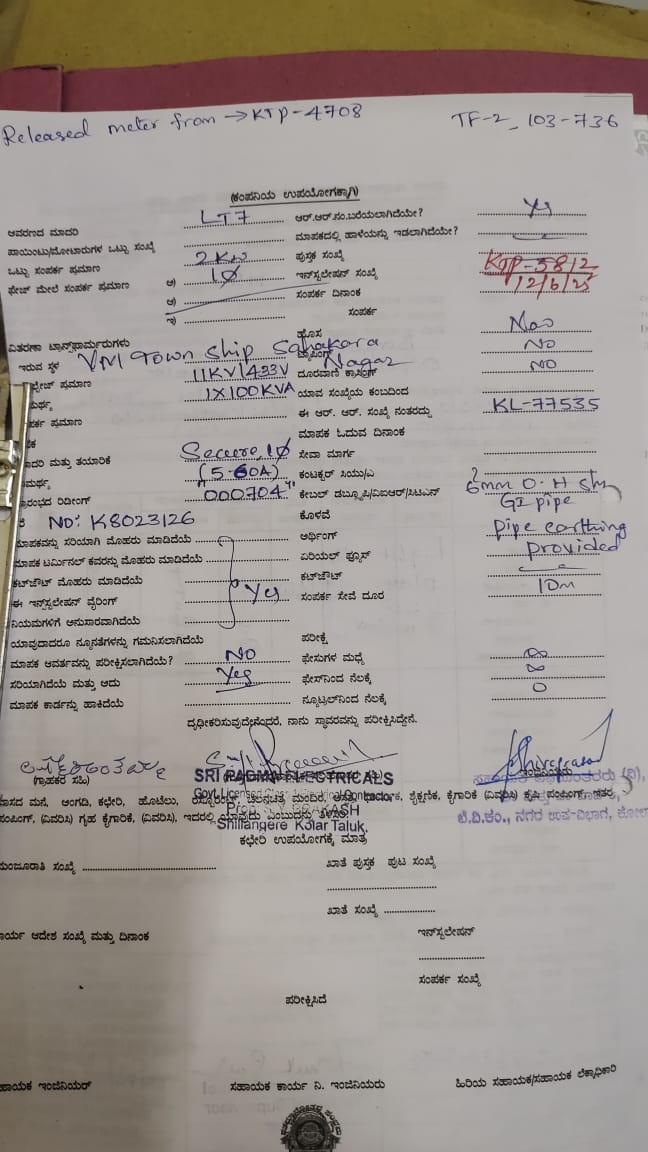 Released meter from → KTP-4708 TF-2, 103-736
(ಕಂಪನಿಯ ಉಪಯೋಗಕ್ಕಾಗಿ)
ಆವರಣದ ಮಾದರಿ LT7 ಆರ್.ಆರ್.ನಂ.ಬರೆಯಲಾಗಿದೆಯೇ? Yes
ಪಾಯಿಂಟು/ಮೋಟಾರುಗಳ ಒಟ್ಟು ಸಂಖ್ಯೆ ಮಾಪಕದಲ್ಲಿ ಹಾಳೆಯನ್ನು ಇಡಲಾಗಿದೆಯೇ?
ಒಟ್ಟು ಸಂಪರ್ಕ ಪ್ರಮಾಣ 2KW ಪುಸ್ತಕ ಸಂಖ್ಯೆ
ಫೇಜ್ ಮೇಲೆ ಸಂಪರ್ಕ ಪ್ರಮಾಣ ಅ) 1Ø ಇನ್‌ಸ್ಟಲೇಷನ್ ಸಂಖ್ಯೆ KTP-5812
ಆ) ಸಂಪರ್ಕ ದಿನಾಂಕ 12/6/25
ಇ) ಸಂಪರ್ಕ
ವಿತರಣಾ ಟ್ರಾನ್ಸ್‌ಫಾರ್ಮರುಗಳು ಹೊಸ
ಇರುವ ಸ್ಥಳ VM Town Ship Sahakara Nagar NO
ಪ್ರಮಾಣ 11KV/433V ದೂರವಾಣಿ ಕ್ರಾಸಿಂಗ್ NO
1X100KVA ಯಾವ ಸಂಖ್ಯೆಯ ಕಂಬದಿಂದ
ಪ್ರಮಾಣ ಈ ಆರ್. ಆರ್. ಸಂಖ್ಯೆ ನಂತರದ್ದು KL-77535
ಮಾಪಕ ಓದುವ ದಿನಾಂಕ
ಮತ್ತು ತಯಾರಿಕೆ Secure, 1Ø ಸೇವಾ ಮಾರ್ಗ
(5-60A) ಕಂಟಕ್ಟರ್ ಸಿಯು/ಎ
ರೀಡಿಂಗ್ "000704" ಕೇಬಲ್ ಡಬ್ಲ್ಯೂಪಿ/ವಿಐಆರ್/ಸಿಟಿಎಸ್ 6mm O.H
NO: K8023126 ಕೊಳವೆ GI pipe
ಮಾಪಕವನ್ನು ಸರಿಯಾಗಿ ಮೊಹರು ಮಾಡಿದೆಯೆ ಅರ್ಥಿಂಗ್ pipe earthing
ಮಾಪಕ ಟರ್ಮಿನಲ್ ಕವರನ್ನು ಮೊಹರು ಮಾಡಿದೆಯೆ ಏರಿಯೆಲ್ ಫ್ಯೂಸ್ provided
ಕಟ್‌ಔಟ್ ಮೊಹರು ಮಾಡಿದೆಯೆ ಕಟ್‌ಔಟ್
ಈ ಇನ್‌ಸ್ಟಲೇಷನ್ ವೈರಿಂಗ್ Yes ಸಂಪರ್ಕ ಸೇವೆ ದೂರ 10m
ನಿಯಮಗಳಿಗೆ ಅನುಸಾರವಾಗಿದೆಯೆ
ಯಾವುದಾದರೂ ನ್ಯೂನತೆಗಳನ್ನು ಗಮನಿಸಲಾಗಿದೆಯೆ ಪರೀಕ್ಷೆ
ಮಾಪಕ ಆವರ್ತವನ್ನು ಪರೀಕ್ಷಿಸಲಾಗಿದೆಯೆ? NO ಫೇಸುಗಳ ಮಧ್ಯೆ ∞
ಸರಿಯಾಗಿದೆಯೆ ಮತ್ತು ಅದು Yes ಫೇಸ್‌ನಿಂದ ನೆಲಕ್ಕೆ ∞
ಮಾಪಕ ಕಾರ್ಡನ್ನು ಹಾಕಿದೆಯೆ ನ್ಯೂಟ್ರಲ್‌ನಿಂದ ನೆಲಕ್ಕೆ 0
ದೃಢೀಕರಿಸುವುದೇನೆಂದರೆ, ನಾನು ಸ್ಥಾವರವನ್ನು ಪರೀಕ್ಷಿಸಿದ್ದೇನೆ.
(ಗ್ರಾಹಕರ ಸಹಿ) SRI PADMA ELECTRICALS
ವಾಸದ ಮನೆ, ಅಂಗಡಿ, ಕಛೇರಿ, ಹೊಟೆಲು, ಚಲನಚಿತ್ರ ಮಂದಿರ, ಶೈಕ್ಷಣಿಕ, ಕೈಗಾರಿಕೆ (ವಿವರಿಸಿ) ಕೃಷಿ ಪಂಪಿಂಗ್, ಇತರೆ
ಪಂಪಿಂಗ್, (ವಿವರಿಸಿ) ಗೃಹ ಕೈಗಾರಿಕೆ, (ವಿವರಿಸಿ), ಇದರಲ್ಲಿ ಯಾವುದು ಎಂಬುದನ್ನು ತಿಳಿಸಿ.
Shillangere Kolar Taluk. ಬೆ.ವಿ.ಕಂ., ನಗರ ಉಪ-ವಿಭಾಗ,
ಕಛೇರಿ ಉಪಯೋಗಕ್ಕೆ ಮಾತ್ರ
ಮಂಜೂರಾತಿ ಸಂಖ್ಯೆ ಖಾತೆ ಪುಸ್ತಕ ಪುಟ ಸಂಖ್ಯೆ
ಖಾತೆ ಸಂಖ್ಯೆ
ಕಾರ್ಯ ಆದೇಶ ಸಂಖ್ಯೆ ಮತ್ತು ದಿನಾಂಕ ಇನ್‌ಸ್ಟಲೇಷನ್
ಸಂಪರ್ಕ ಸಂಖ್ಯೆ
ಪರೀಕ್ಷಿಸಿದೆ
ಸಹಾಯಕ ಇಂಜಿನಿಯರ್ ಸಹಾಯಕ ಕಾರ್ಯ ನಿ. ಇಂಜಿನಿಯರು ಹಿರಿಯ ಸಹಾಯಕ/ಸಹಾಯಕ ಲೆಕ್ಕಾಧಿಕಾರಿ